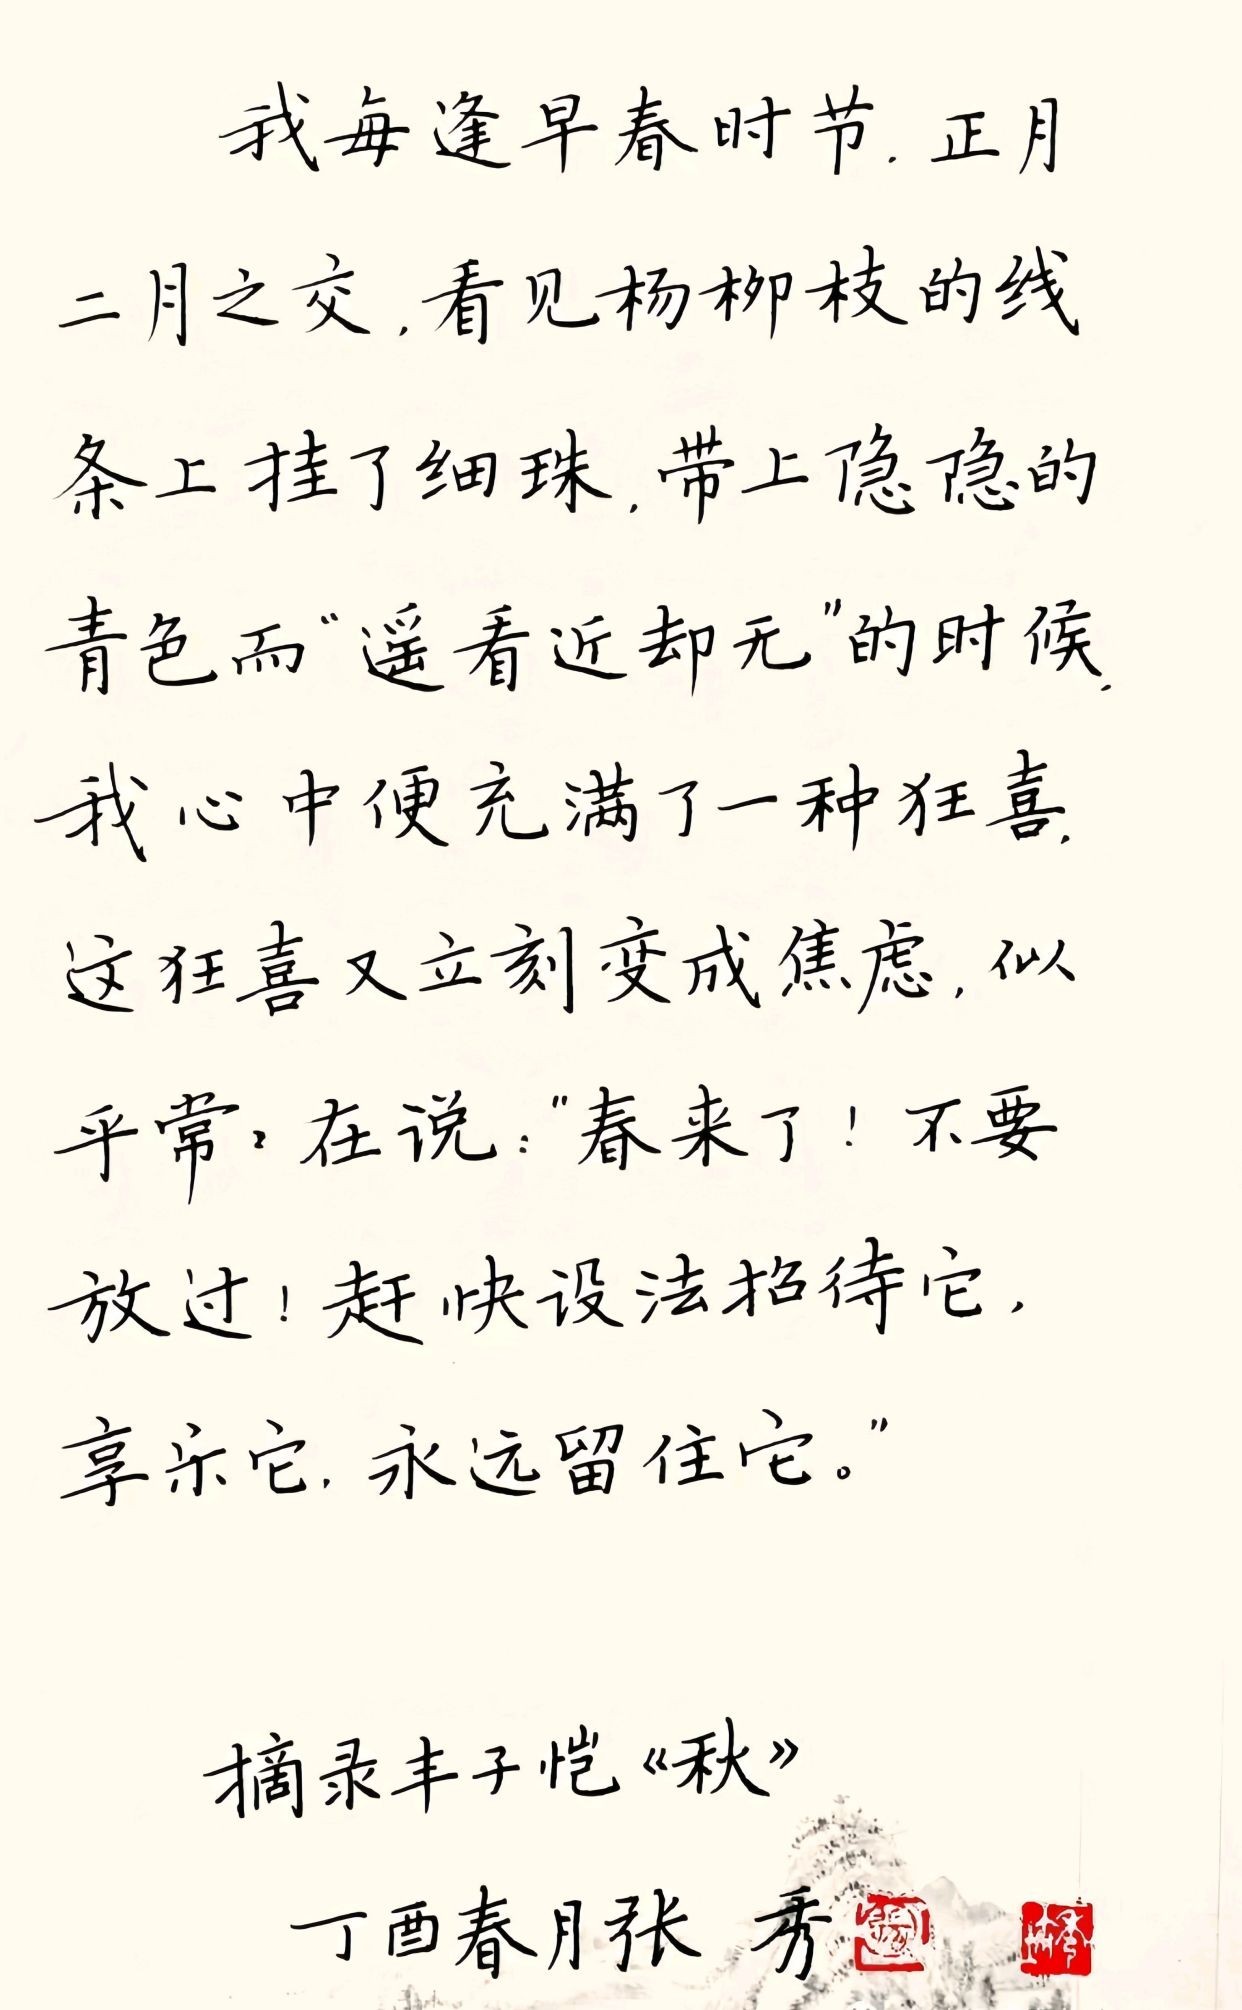 我每逢早春时节,正月
二月之交,看见杨柳枝的线
条上挂了细珠,带上隐隐的
青色而“遥看近却无”的时候,
我心中便充满了一种狂喜,
这狂喜又立刻变成焦虑,似
乎常々在说:“春来了!不要
放过!赶快设法招待它,
享乐它,永远留住它。”
摘录丰子恺《秋》
丁酉春月张 秀